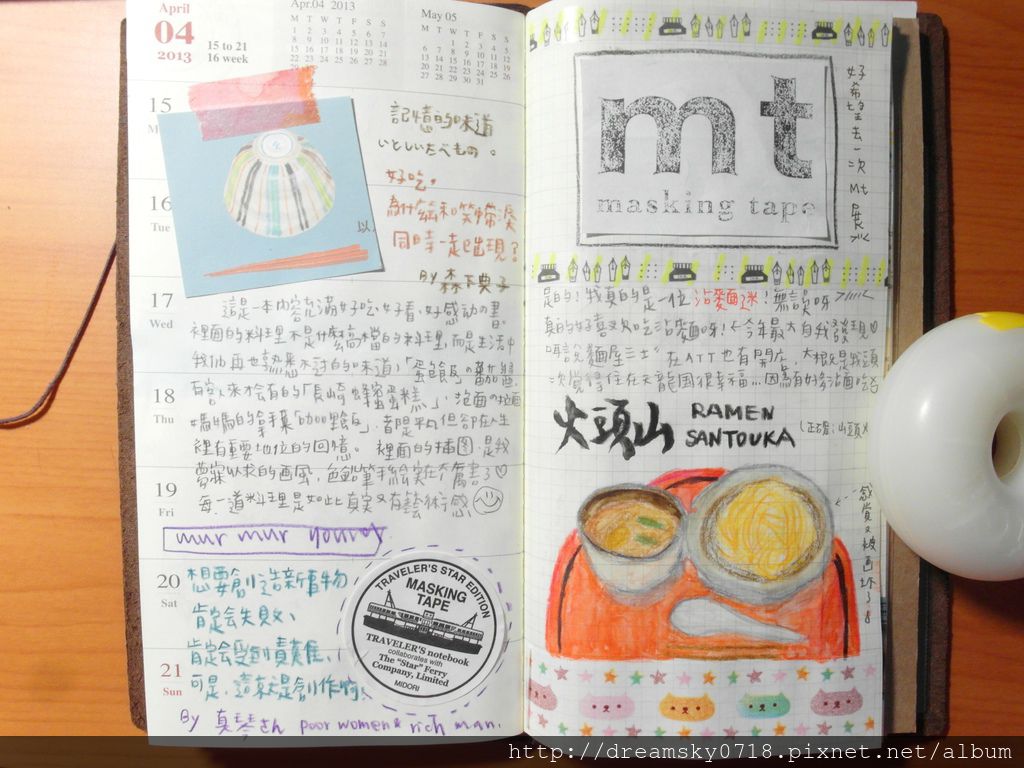 April
04
2013
15 to 21
16 week
Apr.04 2013
M T W T F S S
1 2 3 4 5 6 7
8 9 10 11 12 13 14
15 16 17 18 19 20 21
22 23 24 25 26 27 28
May 05
M T W T F S S
1 2 3 4 5
6 7 8 9 10 11 12
13 14 15 16 17 18 19
20 21 22 23 24 25 26
27 28 29 30 31
15
16
Tue
17
Wed
18
Thu
19
Fri
20
Sat
21
Sun
記憶的味道
いとしいたべもの。
好吃。
為什麼和笑帶淚
同時一起出現?
By 森下典子
這是一本內容充滿好吃、好看、好感動の書。
裡面的料理不是什麼高檔的料理,而是生活中
我們再也熟悉不過的味道,「蛋包飯」の蕃茄
客人來才會有的「長崎蜂蜜蛋糕」、泡麵の
媽媽的拿手菜「咖哩飯」,都是平凡但卻在人生
裡有重要地位的回憶。裡面的插圖,是我
夢寐以求的画風,色鉛筆手繪
每一道料理是如此真實又有藝術感
mur mur
想要創造新事物
肯定会失敗、
肯定会受到責難、
可是,這就是創作
By 真琴さん poor women * rich man.
TRAVELER'S STAR EDITION
MASKING
TAPE
TRAVELER'S notebook
collaborates with
The "Star" Ferry
Company, Limited
MIDORI
mt
masking tape
好希望去一次 Mt 展
是的!我真的是一位沾麵迷!無誤呀
真的好喜欢吃沾麵呀!←今年最大自我發現
聽說麵屋三士在ATT也有開店,大概是我頭
次覺得住在天龍国很幸福
火頭山
RAMEN
SANTOUKA
感覺又被画坏了
http://dreamsky0718.pixnet.net/album